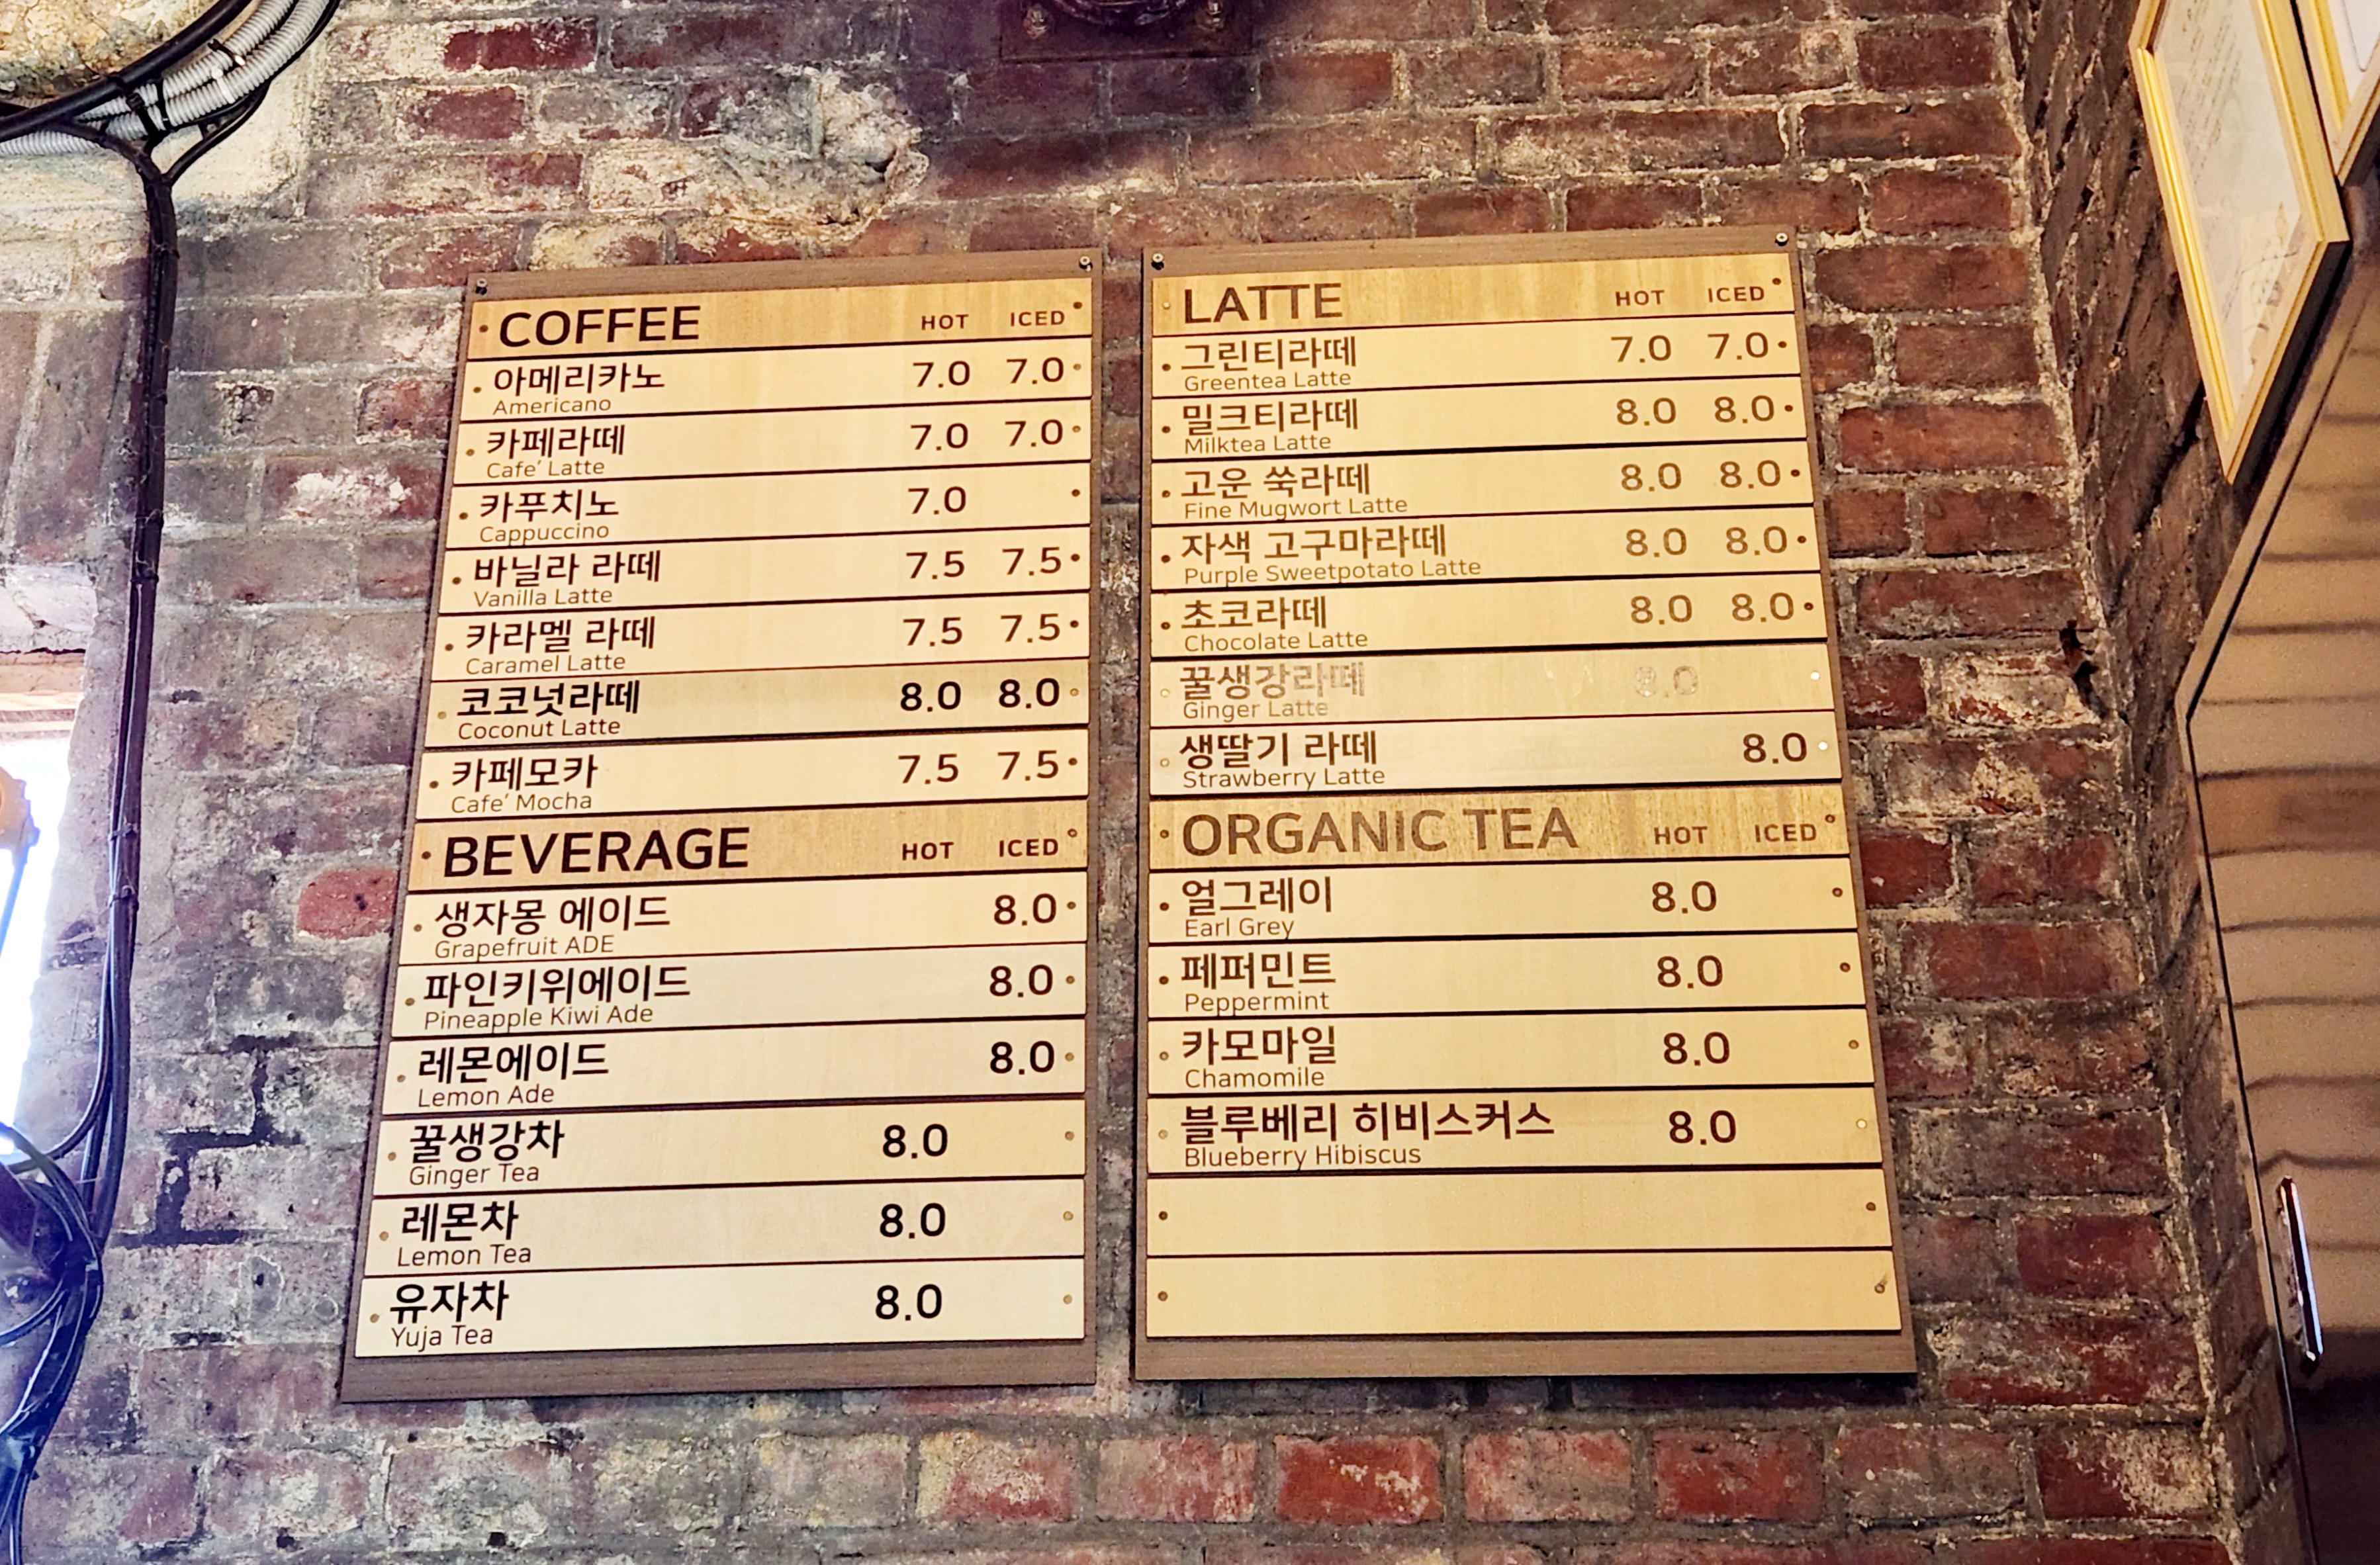 COFFEE HOT ICED
아메리카노 7.0 7.0
Americano
카페라떼 7.0 7.0
Cafe' Latte
카푸치노 7.0
Cappuccino
바닐라 라떼 7.5 7.5
Vanilla Latte
카라멜 라떼 7.5 7.5
Caramel Latte
코코넛라떼 8.0 8.0
Coconut Latte
카페모카 7.5 7.5
Cafe' Mocha
BEVERAGE HOT ICED
생자몽 에이드 8.0
Grapefruit ADE
파인키위에이드 8.0
Pineapple Kiwi Ade
레몬에이드 8.0
Lemon Ade
꿀생강차 8.0
Ginger Tea
레몬차 8.0
Lemon Tea
유자차 8.0
Yuja Tea
LATTE HOT ICED
그린티라떼 7.0 7.0
Greentea Latte
밀크티라떼 8.0 8.0
Milktea Latte
고운 쑥라떼 8.0 8.0
Fine Mugwort Latte
자색 고구마라떼 8.0 8.0
Purple Sweetpotato Latte
초코라떼 8.0 8.0
Chocolate Latte
꿀생강라떼 8.0
Ginger Latte
생딸기 라떼 8.0
Strawberry Latte
ORGANIC TEA HOT ICED
얼그레이 8.0
Earl Grey
페퍼민트 8.0
Peppermint
카모마일 8.0
Chamomile
블루베리 히비스커스 8.0
Blueberry Hibiscus